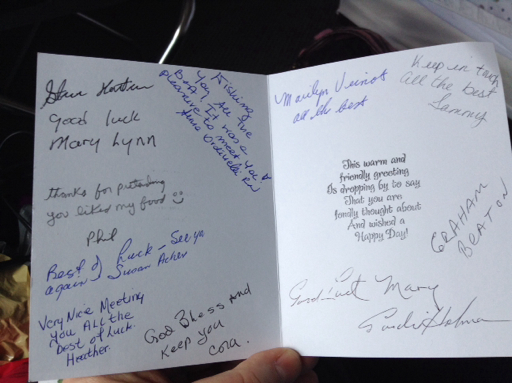 Good luck
Mary Lynn
Wishing
You All the
Best, It was a
pleasure to meet you
thanks for pretending
you liked my food
Phil
Best of Luck - See ya
again Susan
Very Nice Meeting
You All the
Best of Luck.
Heather.
God Bless and
Keep you
Cora.
Marilyn Veinot
all the best
Keep in touch
all the best
Sammy
This warm and
friendly greeting
Is dropping by to say
That you are
fondly thought about
And wished a
Happy Day!
GRAHAM
BEATON
Good Luck Mary